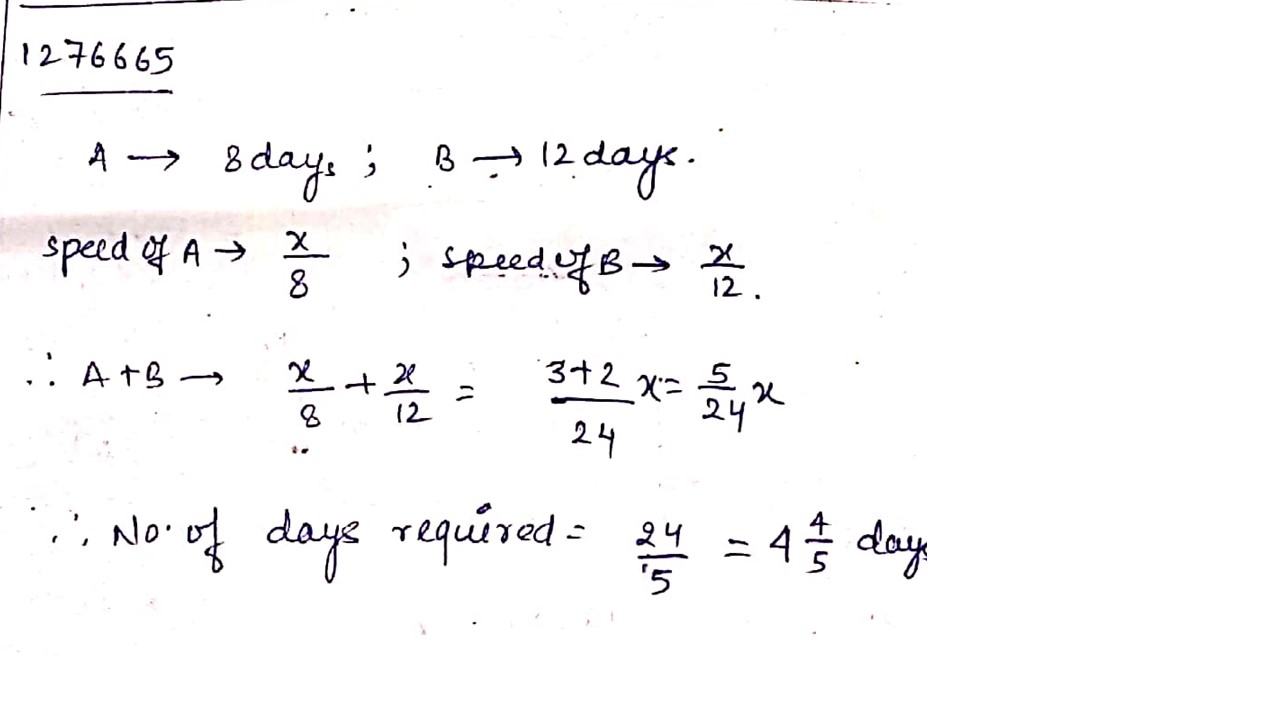 1276665
A → 8 days ; B → 12 days.
speed of A → x/8 ; speed of B → x/12.
∴ A + B → x/8 + x/12 = 3+2/24 x = 5/24 x
∴ No. of days required = 24/5 = 4 4/5 days